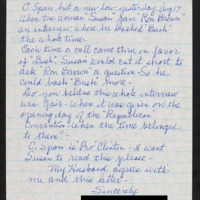 C. Span hit a new low yesterday Aug 17
When the woman Susan gave Ron Brown
an interview, where he bashed Bush
the whole time.
Each time a call came thru in favor
of "Bush" Susan would cut it short to
ask Ron Brown a question - So he
could bash "Bush" more -
Do you believe this whole interview
was fair - When it was given on the
opening day of the Republican
Convention - When the time belonged
to them" -
C. Span is "Pro" Clinton - I want
Susan to read this please -
"My Husband agrees with
me and this letter" -
Sincerely